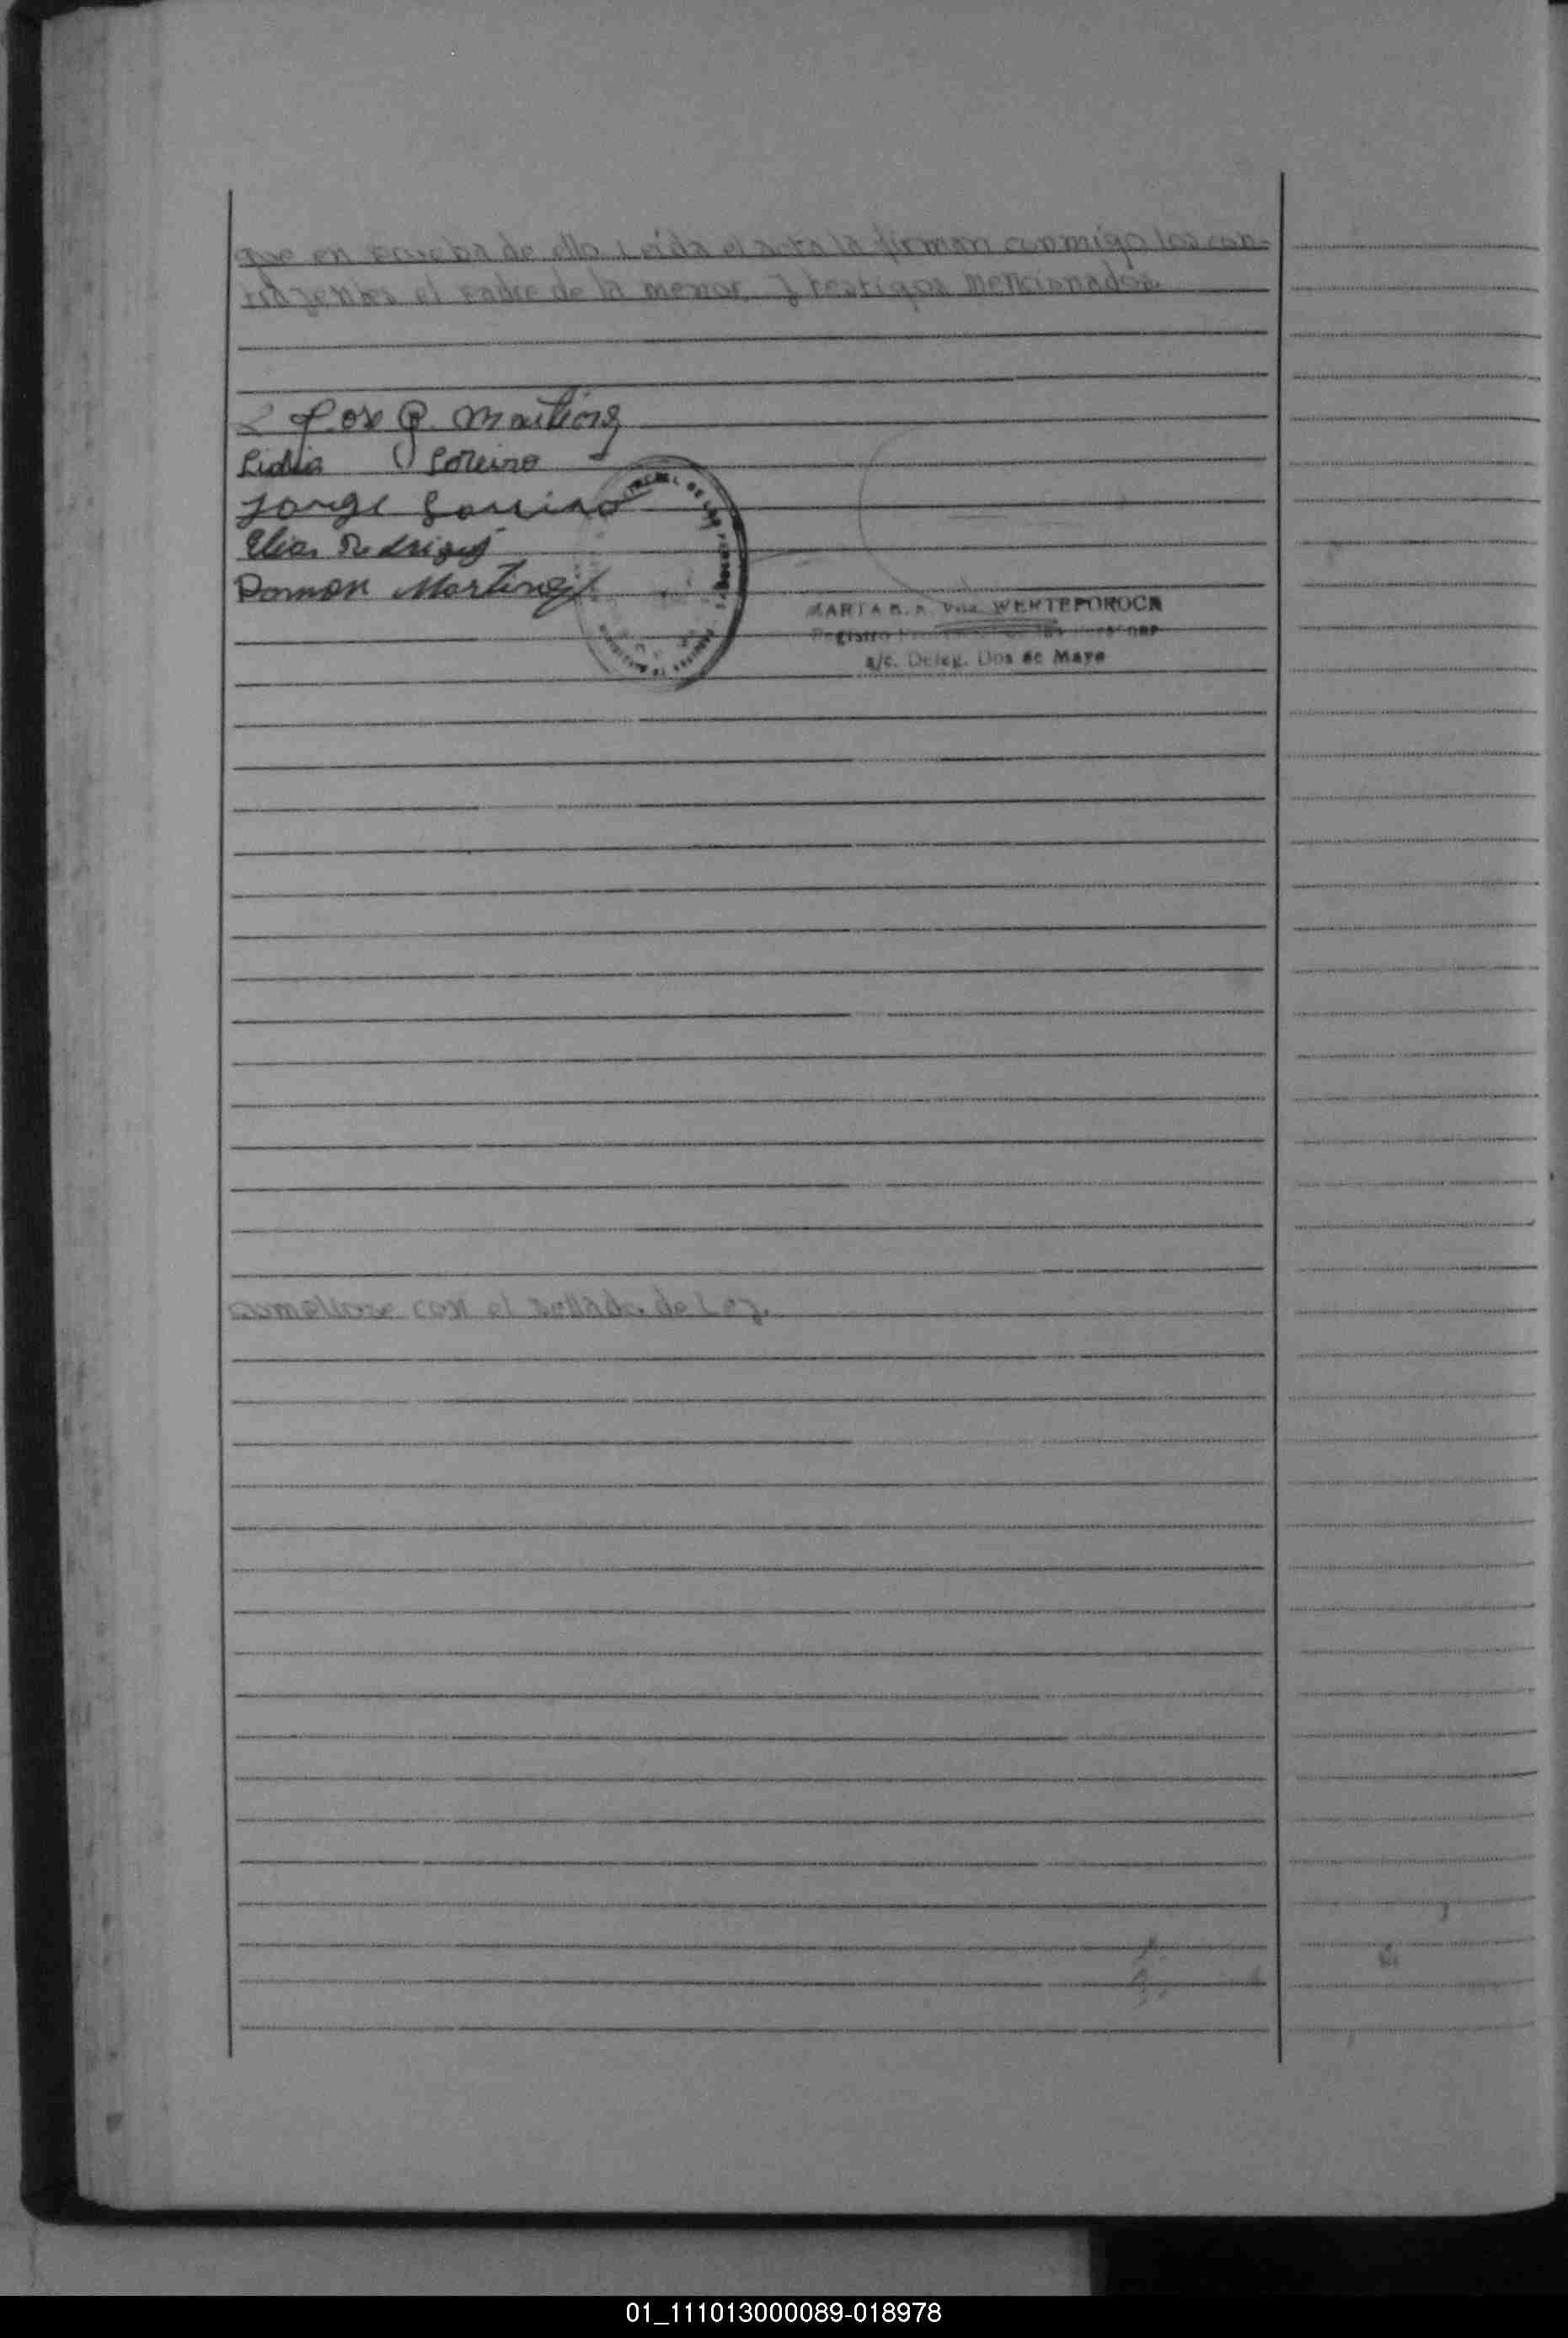 que en prueba de ello Leida el acta la firman conmigo los con-
trayentes el padre de la menor y testigos mencionados.
Jose G. Martinez
Lidia
Jorge
Elias Rodriguez
Ramon Martinez
MARIA Vda. WERTEPOROCH
Registro de las Personas
a/c. Deleg. Dos de Mayo
cumpliose con el sellado de Ley.
01_111013000089-018978